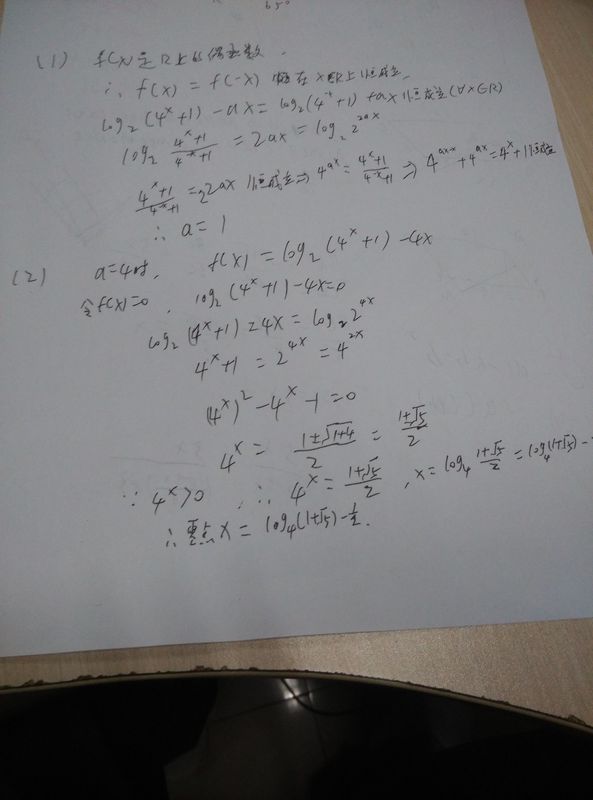 650
(1) f(x)是R上的偶函数.
∴ f(x) = f(-x) 在 x∈R上恒成立.
log₂(4ˣ+1) - ax = log₂(4⁻ˣ+1) + ax 恒成立(∀x∈R)
log₂ (4ˣ+1)/(4⁻ˣ+1) = 2ax = log₂ 2²ᵃˣ
(4ˣ+1)/(4⁻ˣ+1) = 2²ᵃˣ 恒成立 ⇒ 4ᵃˣ = (4ˣ+1)/(4⁻ˣ+1) ⇒ 4ᵃˣ⁻ˣ + 4ᵃˣ = 4ˣ+1 恒成立
∴ a = 1
(2) a=4时, f(x) = log₂(4ˣ+1) - 4x
令f(x)=0, log₂(4ˣ+1) - 4x=0
log₂(4ˣ+1) = 4x = log₂ 2⁴ˣ
4ˣ+1 = 2⁴ˣ = 4²ˣ
(4ˣ)² - 4ˣ - 1 = 0
4ˣ = (1±√(1+4))/2 = (1±√5)/2
∵ 4ˣ>0 ∴ 4ˣ = (1+√5)/2, x = log₄ (1+√5)/2 = log₄(1+√5) -
∴ 零点 x = log₄(1+√5) - ½.